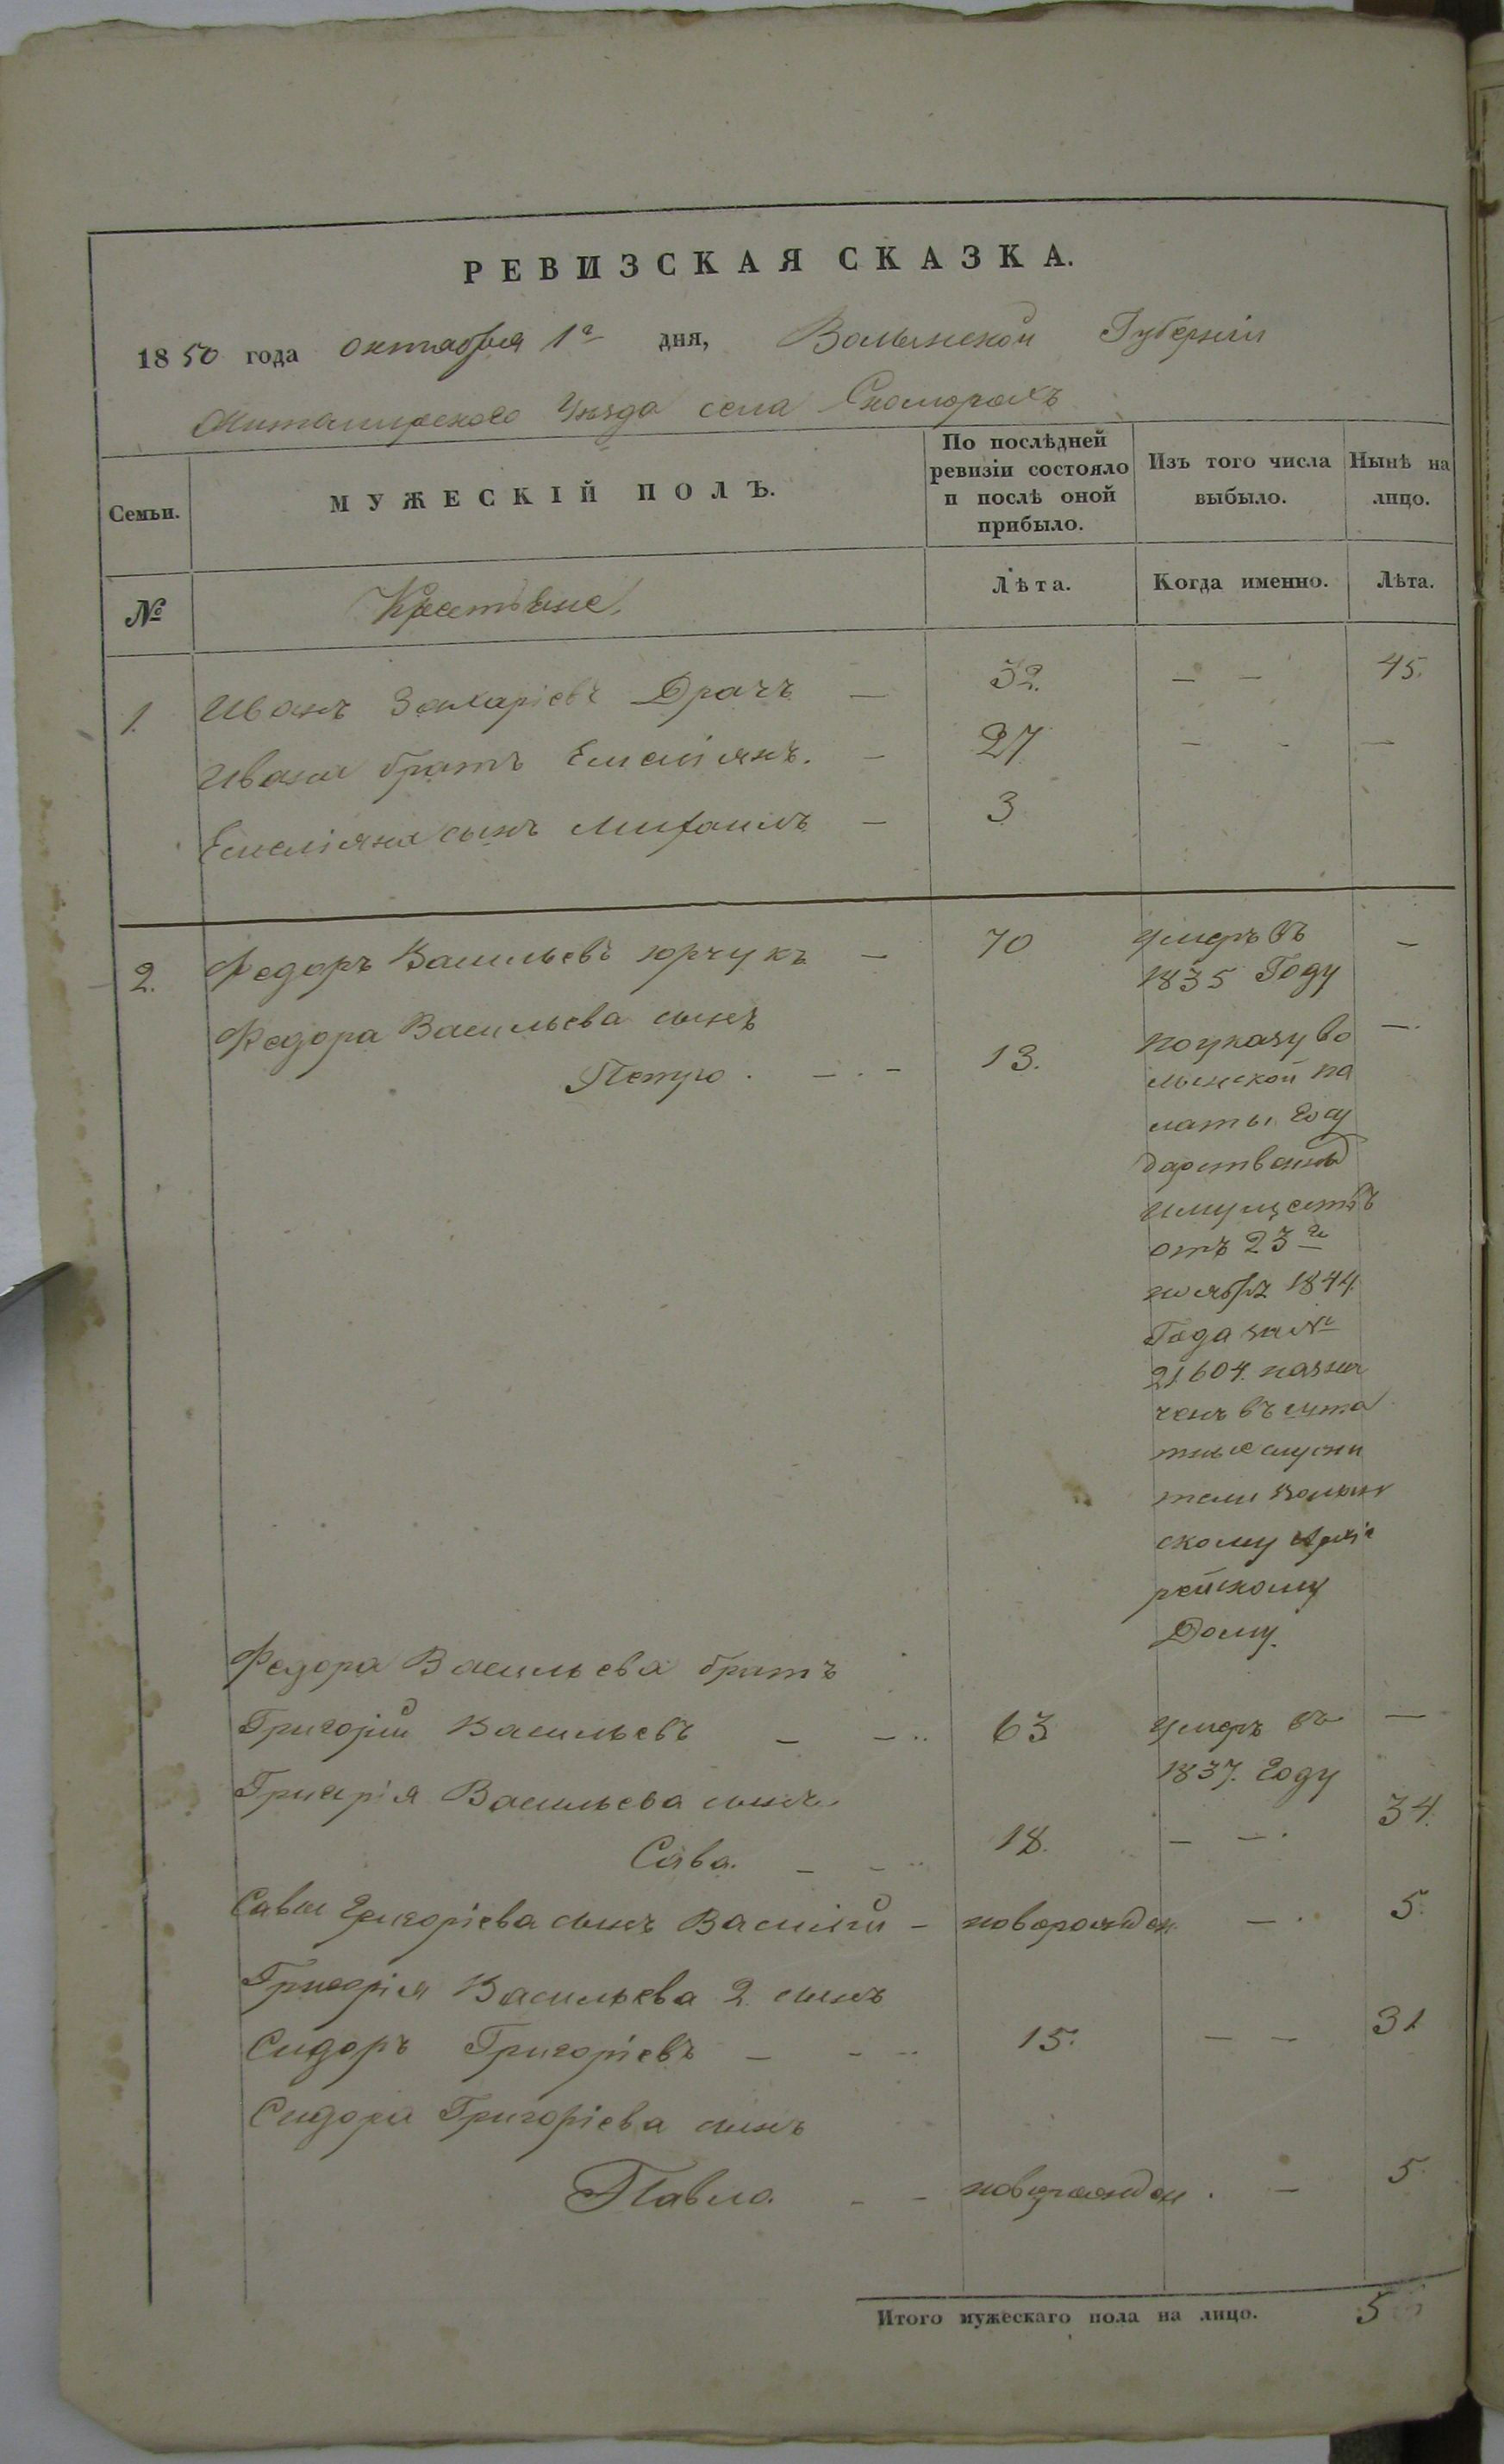 РЕВИЗСКАЯ СКАЗКА.
1850 года октября 1го дня, Волынской Губерніи
Житомирскаго Уезда села Скоморохъ
Семьи.
МУЖЕСКІЙ ПОЛЪ.
По послѣдней ревизіи состояло и послѣ оной прибыло.
Изъ того числа выбыло.
Нынѣ на лицо.
№
Крестьяне
Лѣта.
Когда именно.
Лѣта.
1. Иванъ Захаріевъ Драчъ — 32. — — 45.
Ивана братъ Емеліянъ. — 27 — - —
Емеліяна сынъ Михаилъ — 3
2. Федоръ Васильевъ Юрчукъ — 70 умеръ въ —
1835 Году
Федора Васильева сынъ
Петро. — . — 13. по указу Во —.
лынской па
латы Госу
дарственныхъ
имуществъ
отъ 23го
ноября 1844
Года за №
21604. назна
ченъ въ шта
тные служи
тели Волын
скому Архіе
рейскому
Дому.
Федора Васильева братъ
Григорій Васильевъ — — .. 63 умеръ въ —
1837. Году
Григорія Васильева сынъ
Сава. — - .. 18. — —. 34.
Савы Григоріева сынъ Василій — новорожден. —. 5.
Григорія Васильева 2. сынъ
Сидоръ Григоріевъ — - .. 15. — — 31
Сидора Григоріева сынъ
Павло. - - новорожден. — 5.
Итого мужескаго пола на лицо. 5